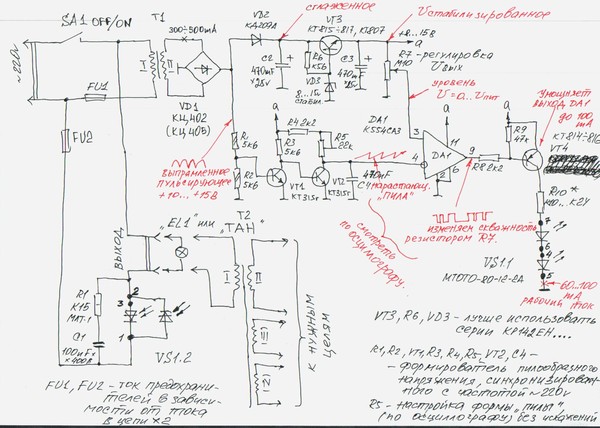 SA1 OFF/ON
T1
300÷500mA
VD2
КД209А
сглаженное
VT3
КТ815÷817, КТ807
Uстабилизированное
+8...15в
а
~220в
I
II
FU1
FU2
VD1
КЦ402
(КЦ405)
C2
470mF
×25v
R6
К56
VD3
8...15v
стабил.
C3
470m
×25v
R7-регулировка
М10
Uвых
уровень
U=0...Uпит
Умощняет
выход DA1
до 100
mA
КТ814÷816
VT4
DA1
К554СА3
а
R4 2к2
R3
5К6
R5
22к
R1
5К6
R2
5К6
VT1
КТ315г
VT2
КТ315г
470mF
C4
нарастающ.
"пила"
3
4
DA1
11
9
2
6
R8 2к2
а
R9
47к
выпрямленное
пульсирующее
+10...+15В
смотреть
по осциллографу.
изменяем скважность
резистором R7.
R10*
7
6
4
5
VS1.1
МТОТО-80-12-2А
60...100
mA
рабочий ток
"EL1" или
T2
"ТАН"
ВЫХОД
I
II
(II)
(2)
К НУЖНЫМ
ЦЕПЯМ
R1
К15
МЛТ-1
C1
100nF
×400В
2
3
1
VS1.2
FU1, FU2 - ток предохрани-
телей в зависи-
мости от тока
в цепи ×2
VT3, R6, VD3 - лучше использовать
серии КР142ЕН....
R1, R2, VT1, R3, R4, R5, VT2, C4 -
- формирователь пилообразного
напряжения, синхронизирован-
ного с частотой ~220v
R5 - настройка формы "пилы"
(по осциллографу) без искажений